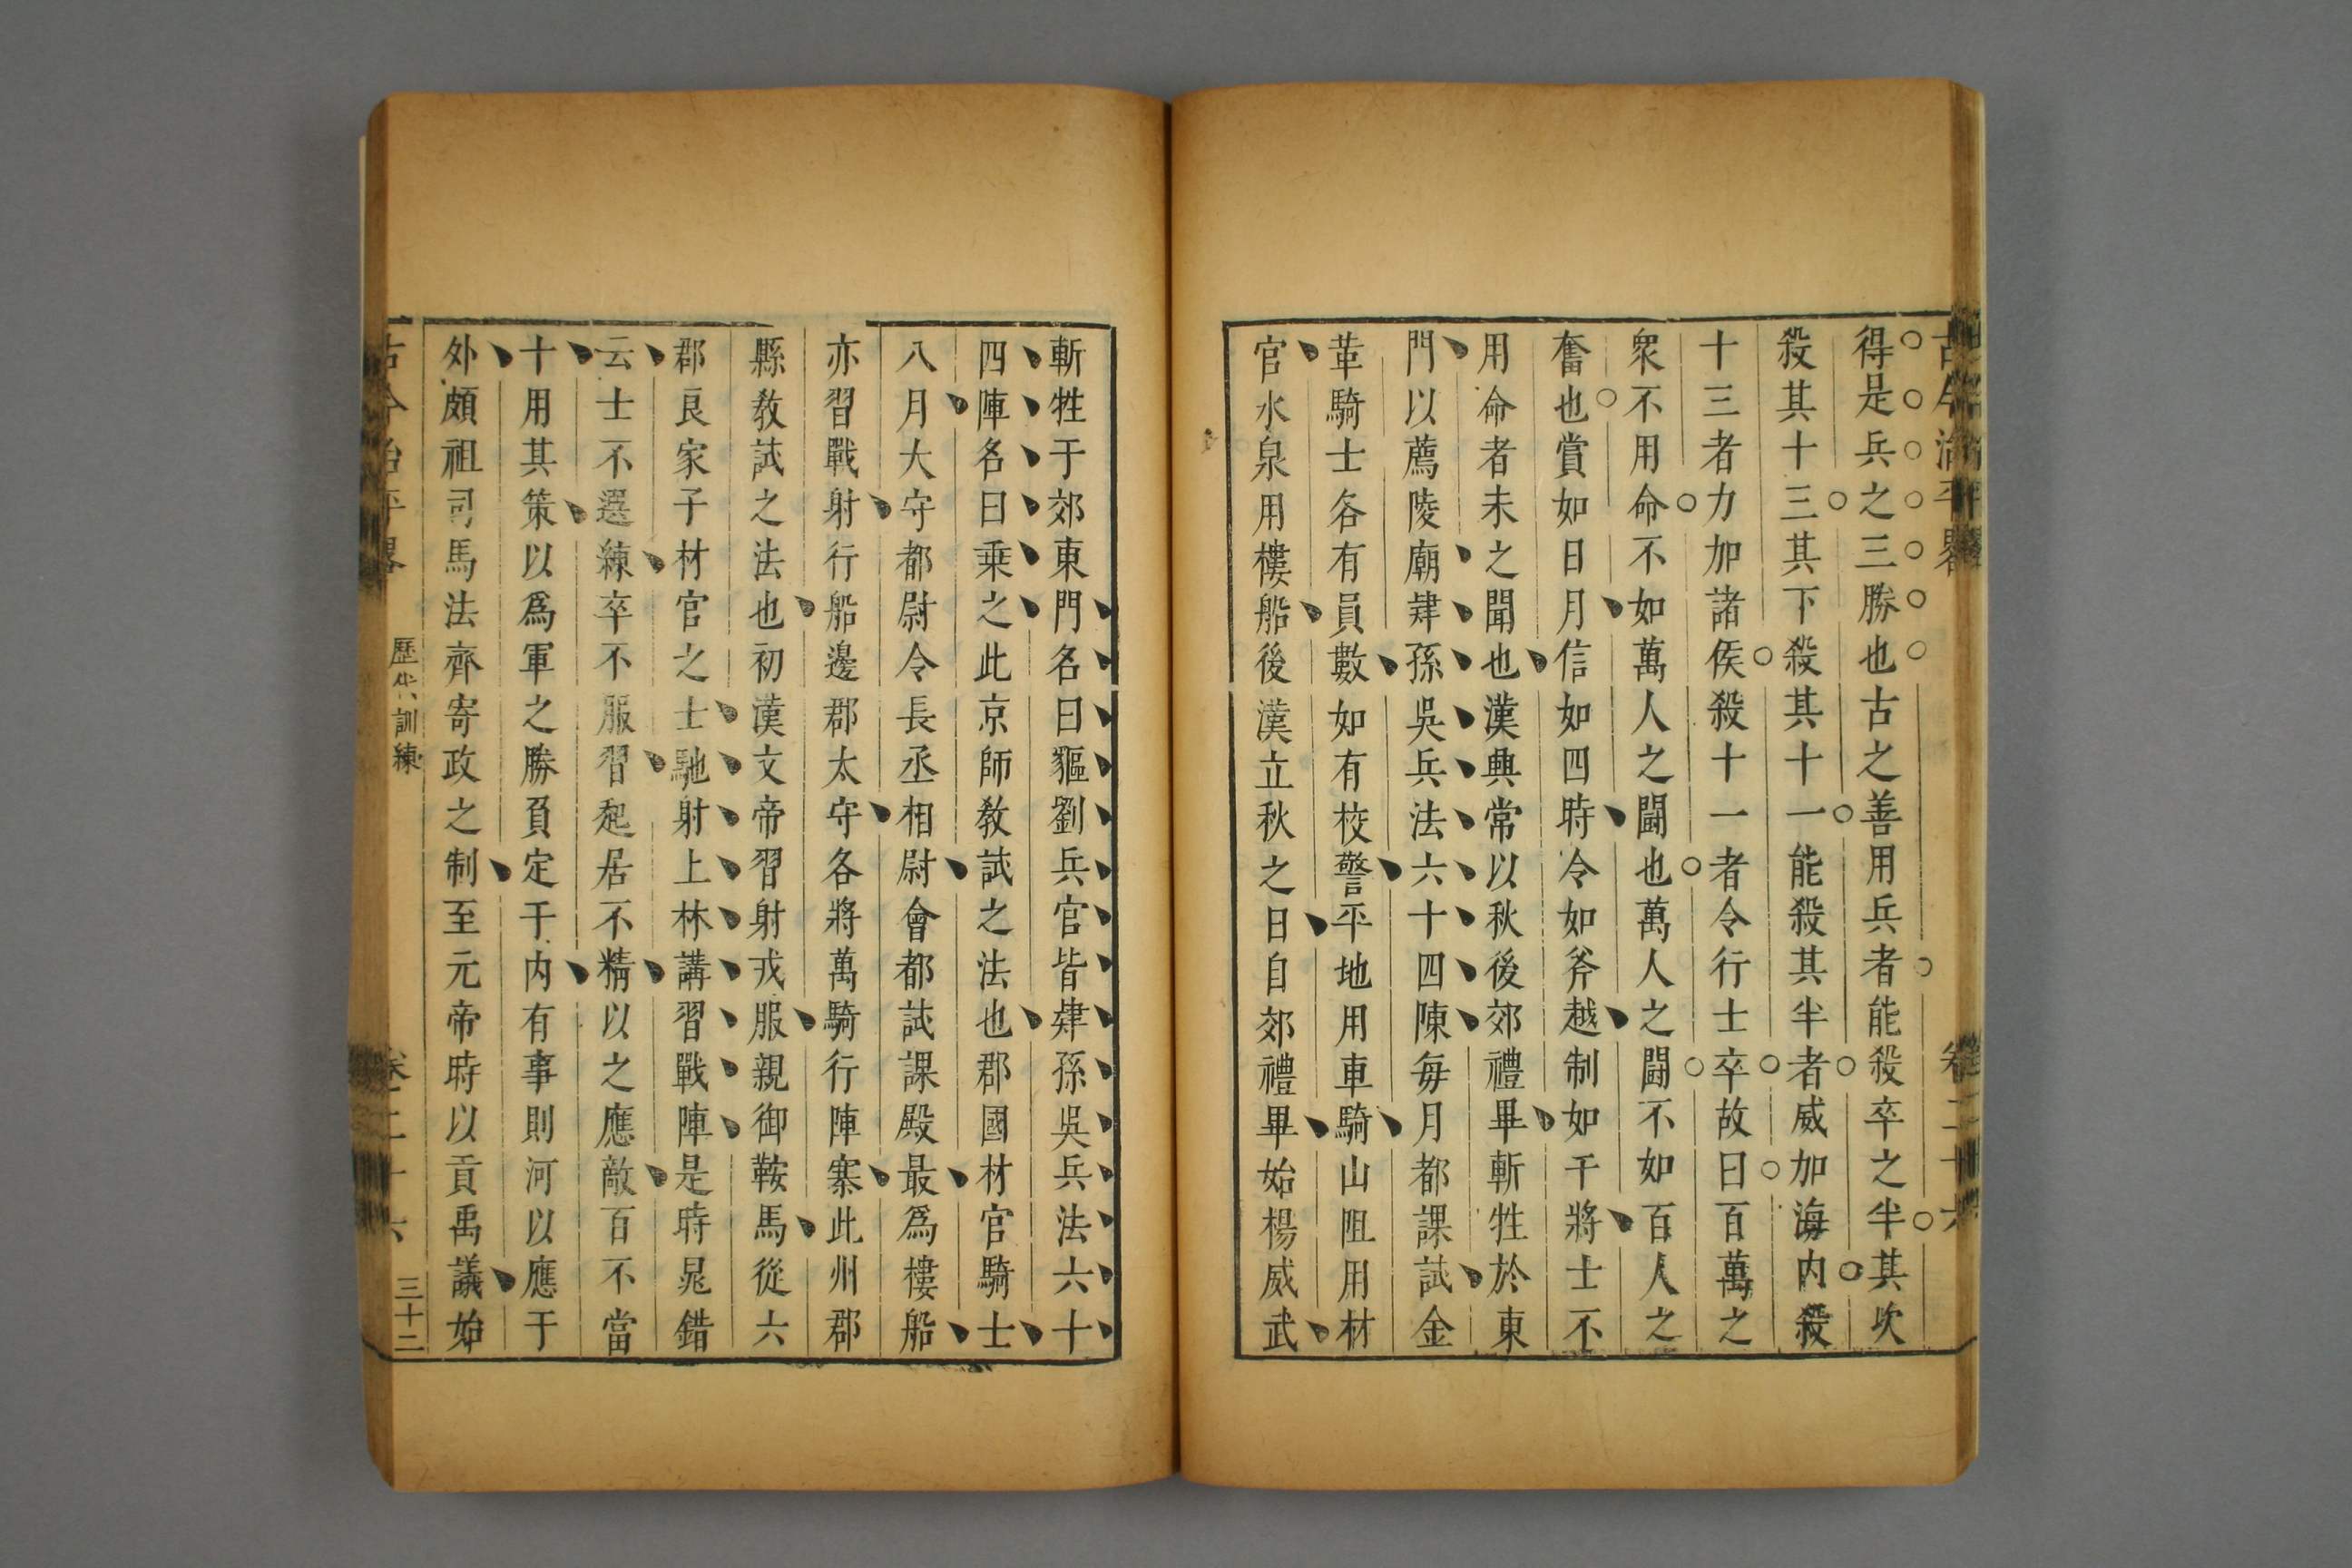 得是兵之三勝也古之善用兵者能殺卒之半其次
殺其十三其下殺其十一能殺其半者威加海内殺
十三者力加諸侯殺十一者令行士卒故曰百萬之
衆不用命不如萬人之鬪也萬人之鬪不如百人之
奮也賞如日月信如四時令如斧越制如干將士不
用命者未之聞也漢興常以秋後郊禮畢斬牲於東
門以薦陵廟肄孫吳兵法六十四陳每月都課試金
革騎士各有員數如有校警平地用車騎山阻用材
官水泉用樓船後漢立秋之日自郊禮畢始楊威武
斬牲于郊東門名曰貙劉兵官皆肄孫吳兵法六十
四陣名曰乗之此京師教試之法也郡國材官騎士
八月大守都尉令長丞相尉會都試課殿最爲樓船
亦習戰射行船邊郡太守各將萬騎行陣寨此州郡
縣教試之法也初漢文帝習射戎服親御鞍馬從六
郡良家子材官之士馳射上林講習戰陣是時晁錯
云士不選練卒不服習起居不精以之應敵百不當
十用其策以爲軍之勝負定于内有事則河以應于
外頗祖司馬法齊寄政之制至元帝時以貢禹議始
古今治平畧
歷代訓練
卷二十六
三十二